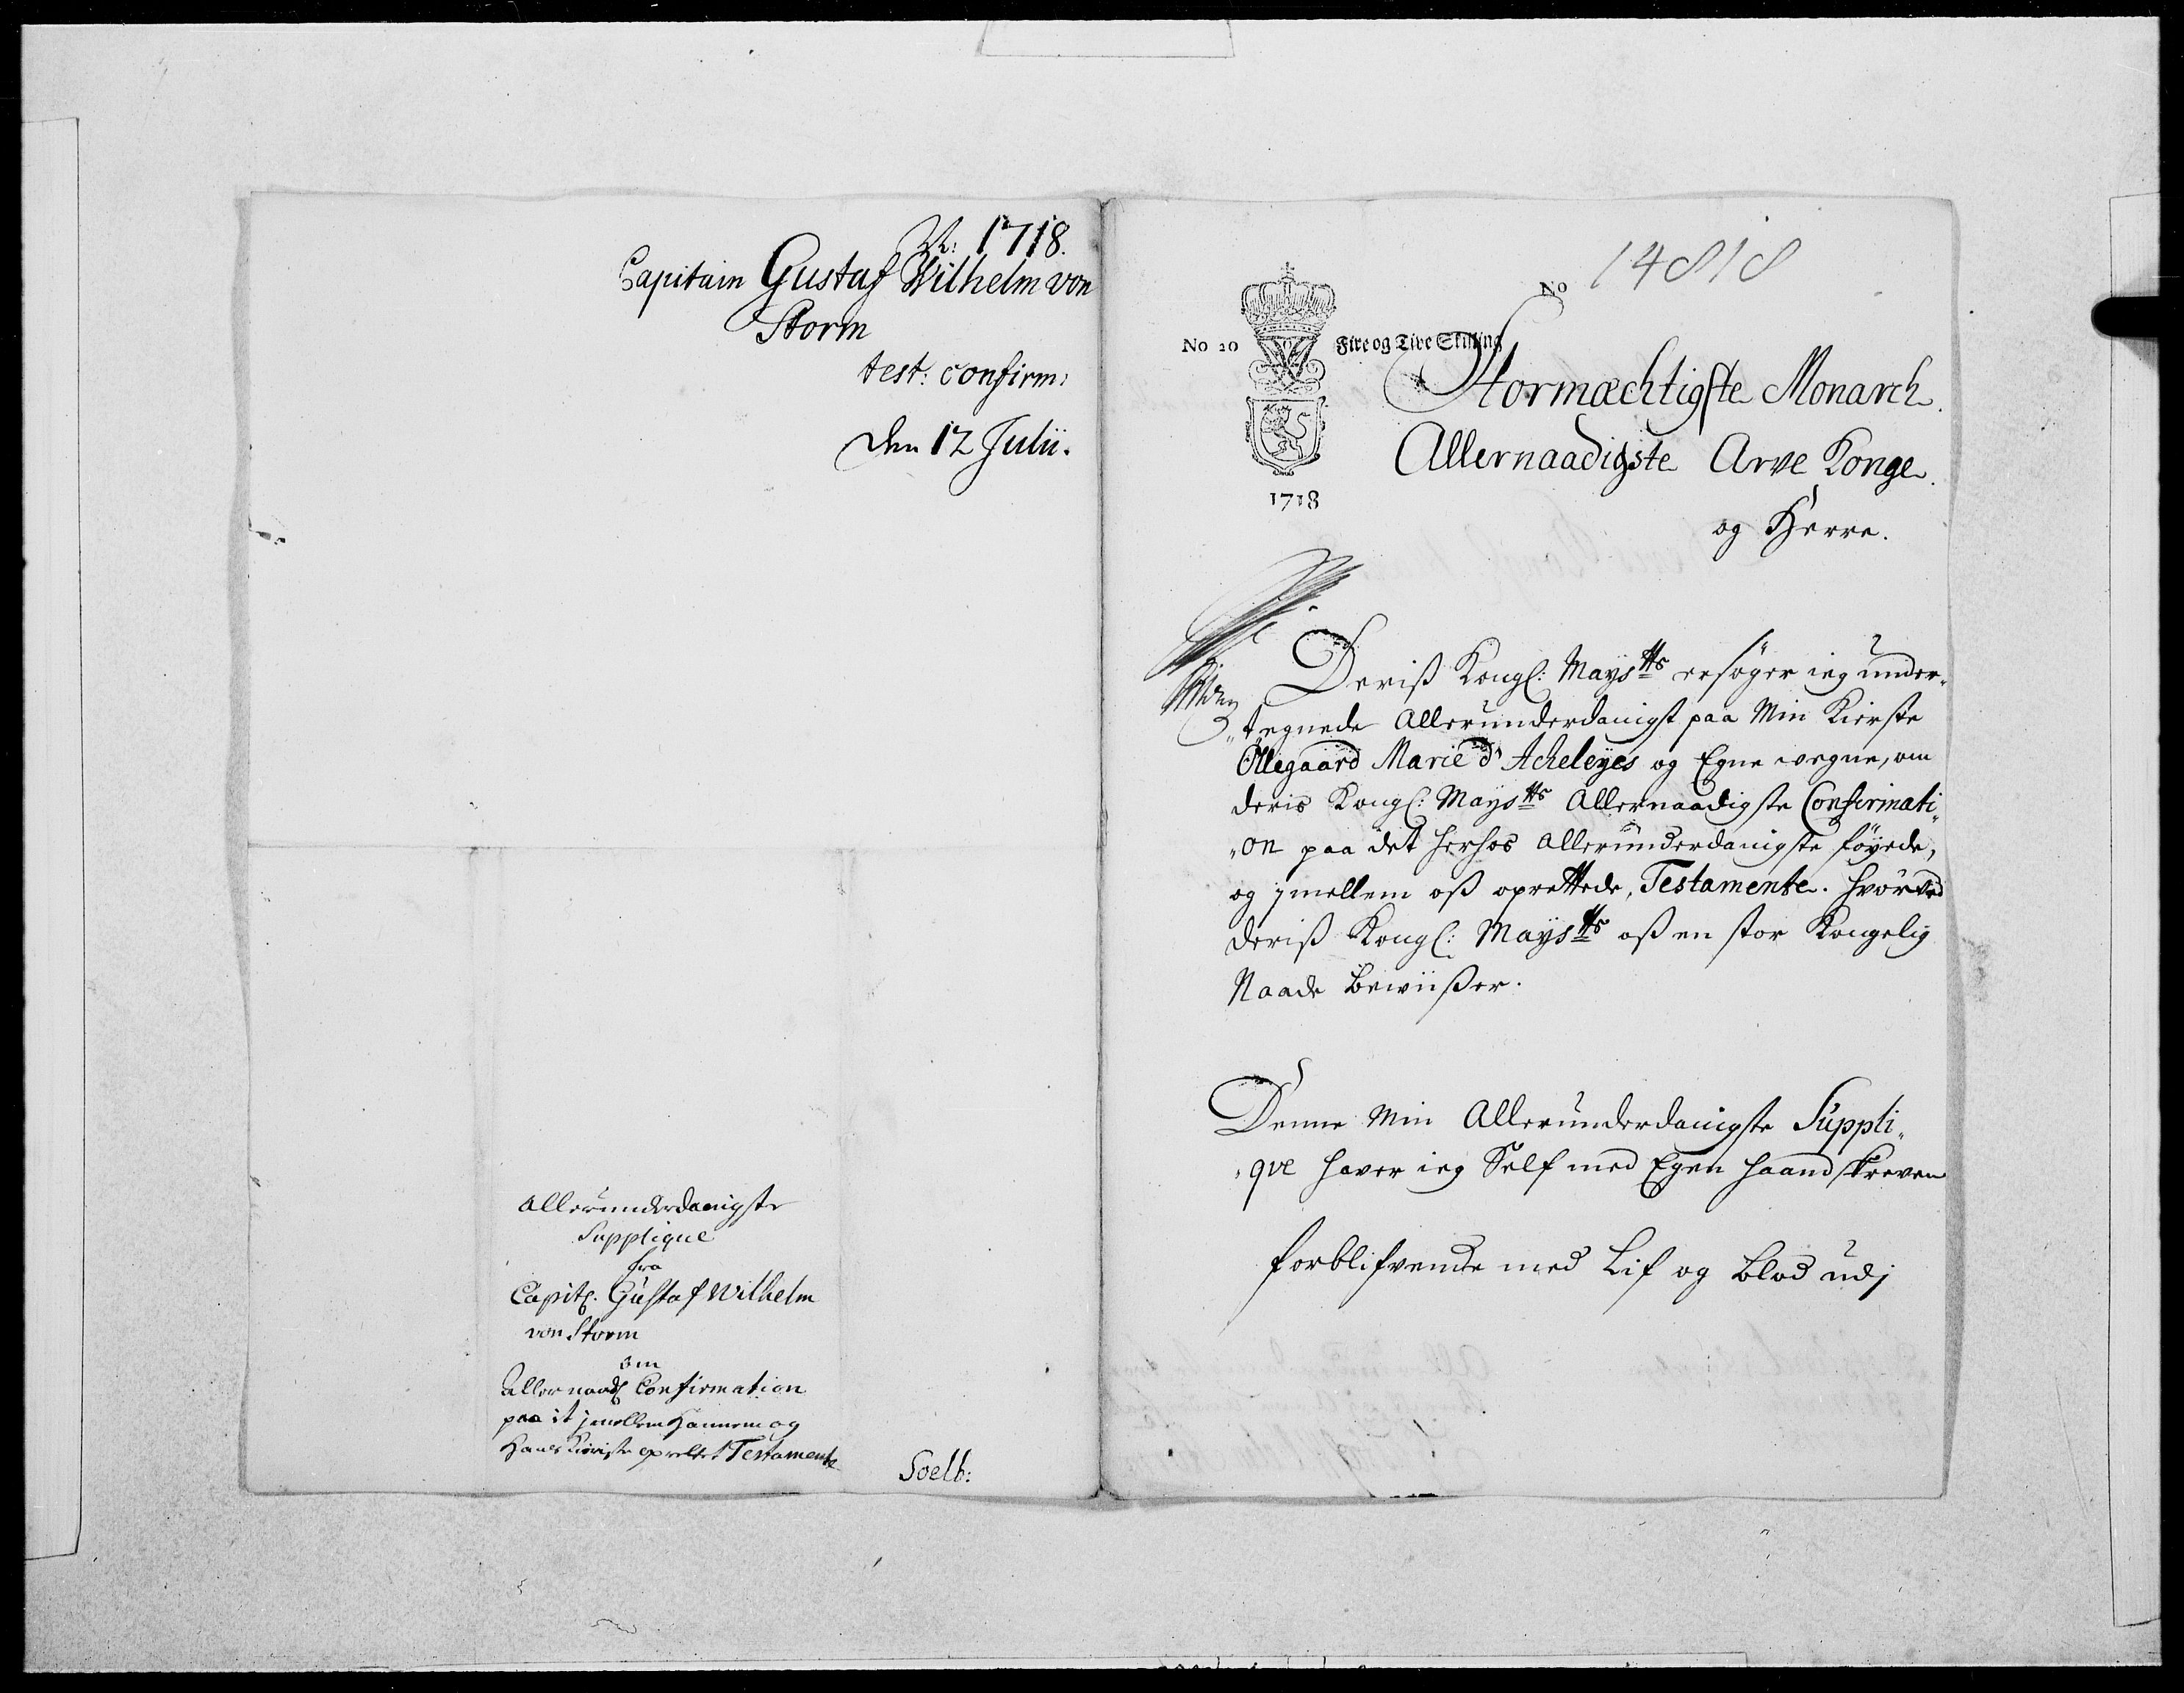 1718.
Capitain Gustaf Wilhelm von
Storm
test: confirm:
den 12 Julii.
Allerunderdanigste
Supplique
fra
Capit: Gustaf Wilhelm
von Storm
om
allernaad: Confirmation
paa it jmellem Hannem og
Hans Kieriste oprettet Testamente
Soelb:
14818
No
No 20
Fire og Tive Skilling
1718
Stormæchtigste Monarch
Allernaadigste Arve Konge
og Herre.
Deriß Kongl: Maysts ersøger ieg under„
„tegnede Allerunderdanigst paa Min Kierste
Ollegaard Marie d'Acheleyes og Egne vegne, om
deris Kongl: Maysts Allernaadigste Confirmati„
„on paa det herhos allerunderdanigste føyede,
og jmellem oß oprettede, Testamente. hvorved
deriß Kongl: Maysts oß en stor Kongelig
Naade bewiißer.
Denne Min Allerunderdanigste Suppli„
„qve haver ieg Self med Egen haand skreven
forblifvende med Lif og Blod udj